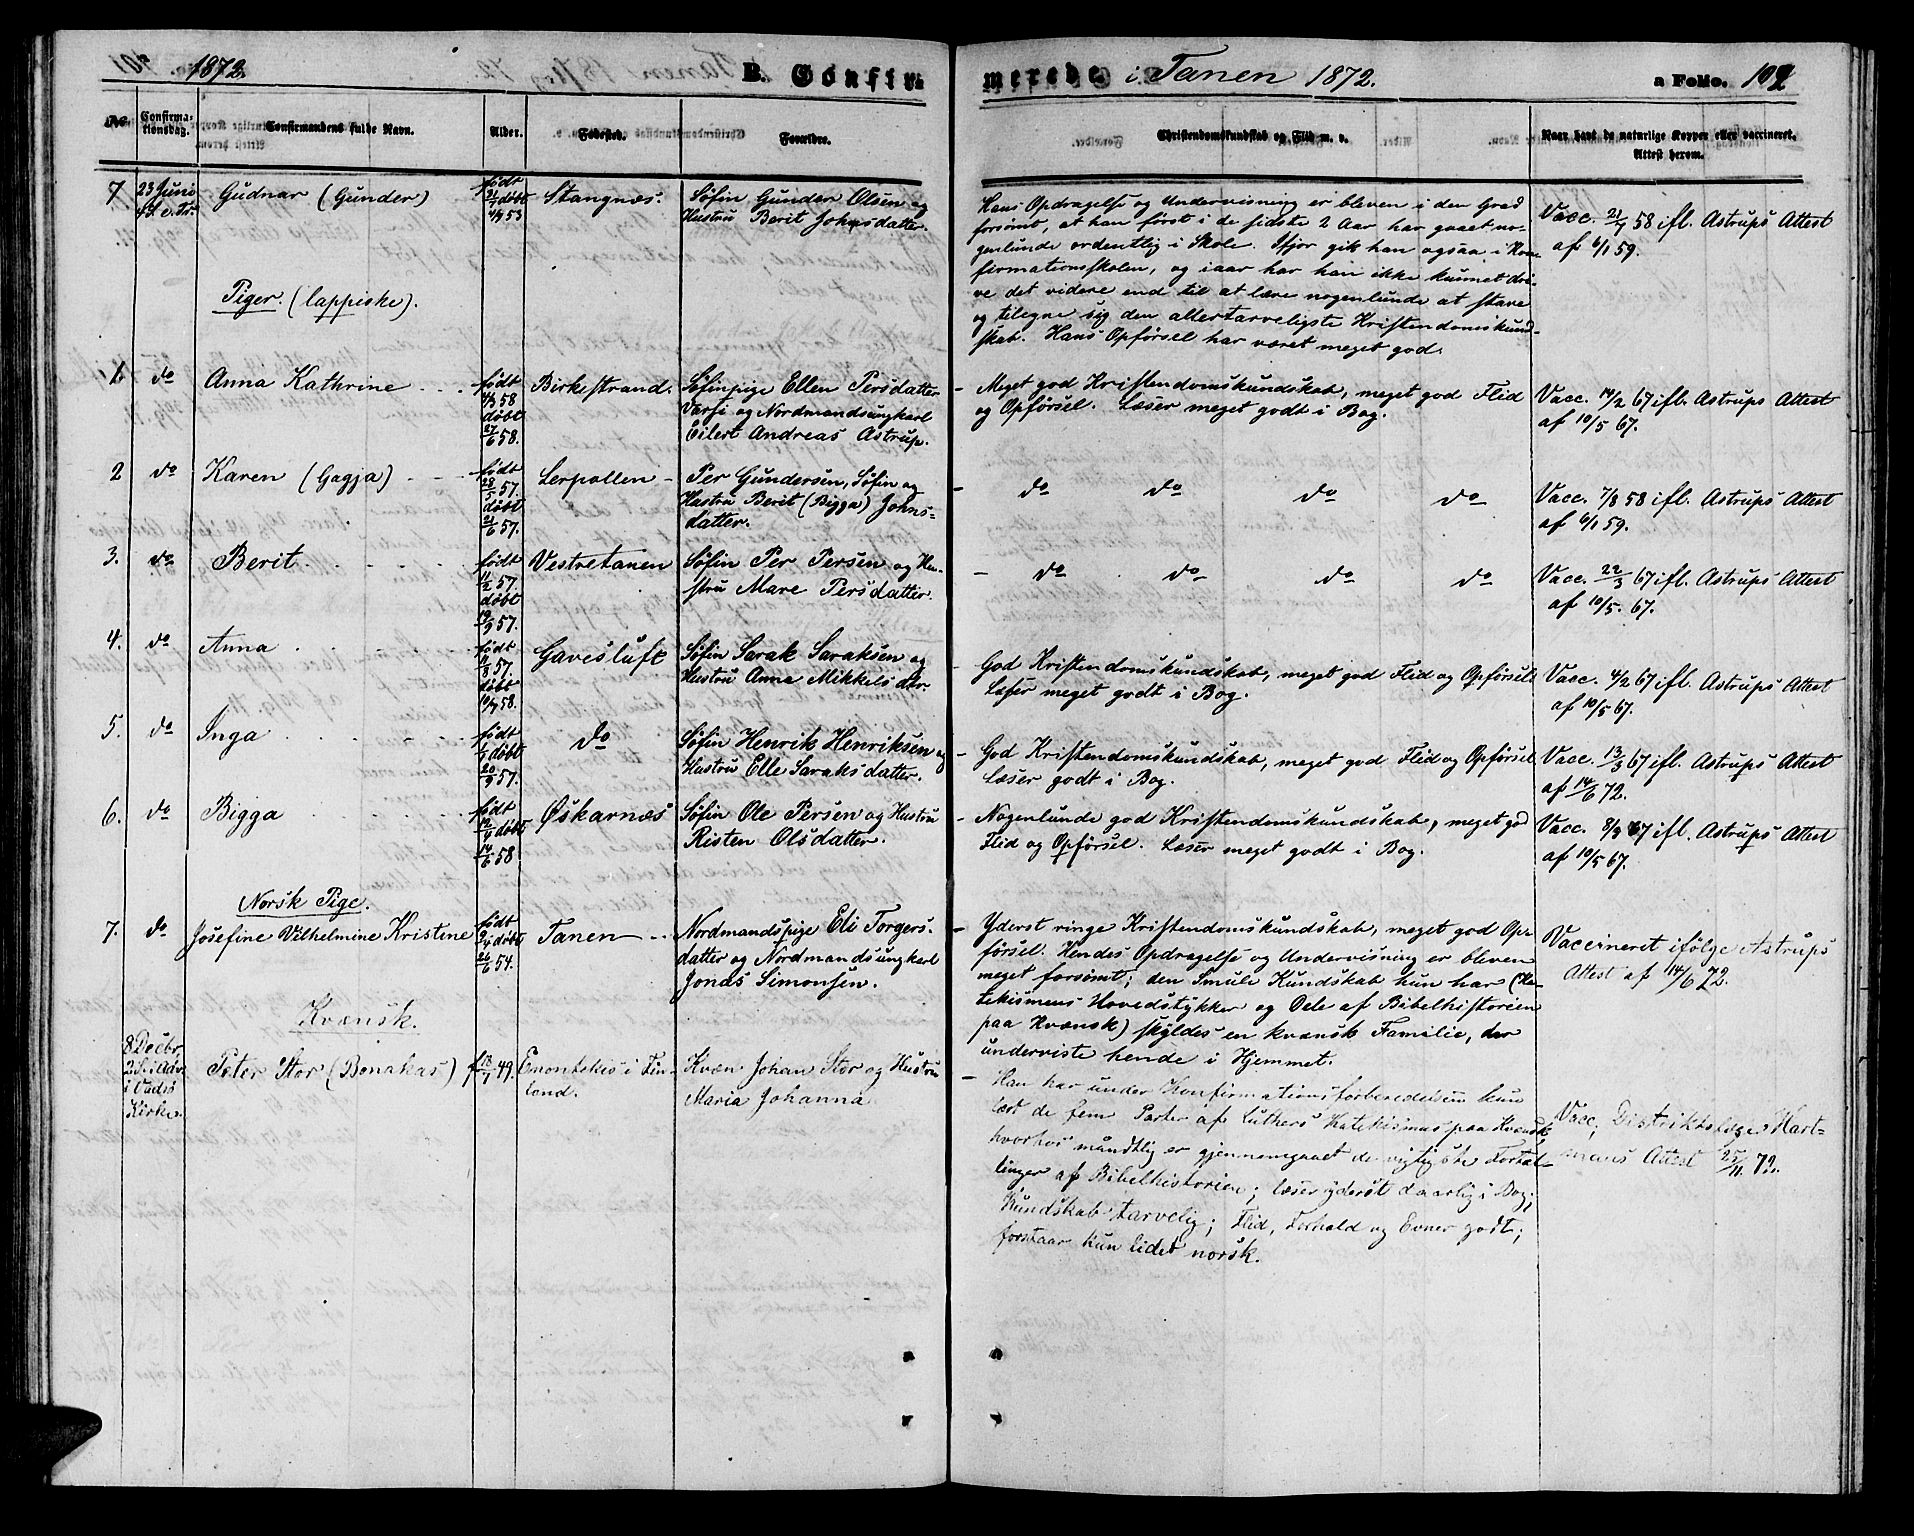 1872.
B. Confir-
merede i Tanen 1872.
a Folio. 102
No.
Confirma-
tionsdag.
Confirmandens fulde Navn.
Alder.
Fødested.
Forældre.
Christendomskundskab og Flid m. v.
Naar havt de naturlige Kopper eller vaccineret,
Attest herom.
7 23 Juni Gudnar (Gunder) født Stangnæs. Søfin Gunder Olsen og
4 S. e. Tr. 21/1 døbt Hustru Berit Johnsdatter.
4/4 53
Hans Opdragelse og Undervisning er bleven i den Grad
forsømt, at han først i de sidste 2 Aar har gaaet no-
genlunde ordentlig i Skole. Ifjor gik han ogsaa i Kon-
firmationsskolen, og iaar har han ikke kunnet dri-
ve det videre end til at lære nogenlunde at stave
og tilegne sig den allertarveligste Kristendomskund-
skab. Hans Opførsel har været meget god.
Vacc. 21/7 58 ifl. Astrups Attest
af 6/1 59.
Piger. (lappiske).
1. do Anna Kathrine født Birkestrand. Søfinpige Ellen Persdatter
4/3 58 Varsi og Nordmandsungkarl
døbt Eilert Andreas Astrup.
27/6 58.
- Meget god Kristendomskundskab, meget god Flid
og Opførsel. Læser meget godt i Bog.
Vacc. 14/2 67 ifl. Astrups Attest
af 10/5 67.
2 do Karen (Gagja) født Lerpollen - Per Gundersen, Søfin og
28/5 57. Hustru Berit (Bigga) Johns-
døbt datter.
21/6 57.
- do do do do
Vacc. 7/8 58 ifl. Astrups Attest
af 6/1 59.
3. do Berit født Vestretanen Søfin Per Persen og Hu-
11/2 57. stru Mare Persdatter.
døbt
19/3 57.
- do do do do
Vacc. 22/3 67 ifl. Astrups Attest
af 10/5. 67.
4. do Anna født Gavesluft Søfin Sarak Saraksen og
11/8 57. Hustru Anna Mikkelsdtr.
døbt
10/4 58.
- God Kristendomskundskab, meget god Flid og Opførsel.
Læser meget godt i Bog.
Vacc. 4/2 67 ifl. Astrups Attest
af 10/5 67.
5. do Inga født do Søfin Henrik Henriksen og
1/1 døbt Hustru Elle Saraksdatter.
20/9 57.
- God Kristendomskundskab, meget god Flid og Opførsel.
Læser godt i Bog.
Vacc. 13/3 67 ifl. Astrups Attest
af 14/6 72.
6. do Bigga født Øskarnæs Søfin Ole Persen og Hustru
12/4 døbt Risten Olsdatter.
14/6 58
- Nogenlunde god Kristendomskundskab, meget god
Flid og Opførsel. Læser meget godt i Bog.
Vacc. 8/2 67 ifl. Astrups Attest
af 10/5 67.
Norsk Pige.
7. do Josefine Vilhelmine Kristine født Tanen Nordmandspige Eli Torgers-
9/4 døbt datter og Nordmandsungkarl
26/6 54. Jonas Simonsen.
- Yderst ringe Kristendomskundskab, meget god Op-
førsel. Hendes Opdragelse og Undervisning er bleven
meget forsømt; den Smule Kundskab hun har (Ka-
tekismens Hovedstykker og Dele af Bibelhistorien
paa Kvænsk) skyldes en kvænsk Familie, der
underviste hende i Hjemmet.
Vaccineret ifølge Astrups
Attest af 14/6 72.
Kvænsk.
8 Decbr
2 S. i Adv. Peter Stor (Bonakas) f. 18/7 49. Enontekis i Fin- Kvæn Johan Stor og Hustru
i Vadsø land. Maria Johanna
Kirke.
- Han har under Konfirmationsforberedelsen kun
lært de fem Parter af Luthers Katekismus paa Kvænsk,
hvorhos mundtlig er gjennemgaaet de vigtigste Fortæl-
linger af Bibelhistorien; læser yderst daarlig i Bog;
Kundskab tarvelig; Flid, Forhold og Evner godt;
forstaar kun lidet norsk.
Vacc, Distriktslæge Hart-
manns Attest 25/11 72.